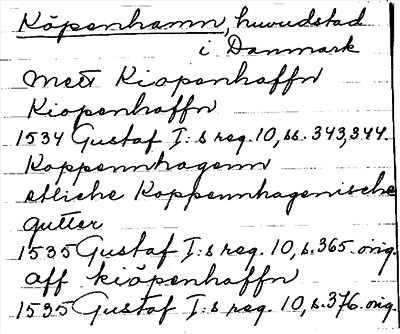 Köpenhamn, huvudstad
i Danmark
mett Kiopenhaffn
Kiopenhaffn
1534 Gustaf I:s reg. 10, ss. 343, 344.
Koppennhagenn
etliche Koppennhagenische
gutter
1535 Gustaf I:s reg. 10, s. 365. orig.
aff kiöpenhaffn
1535 Gustaf I:s reg. 10, s. 376. orig.